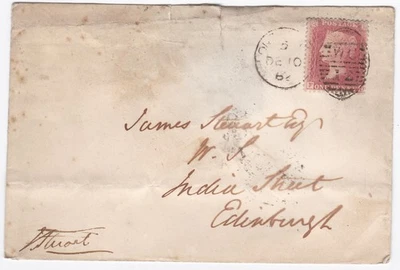 DE 10
62
POSTAGE
James Stewart Esqr
W. S.
India Street
Edinburgh
JStuart